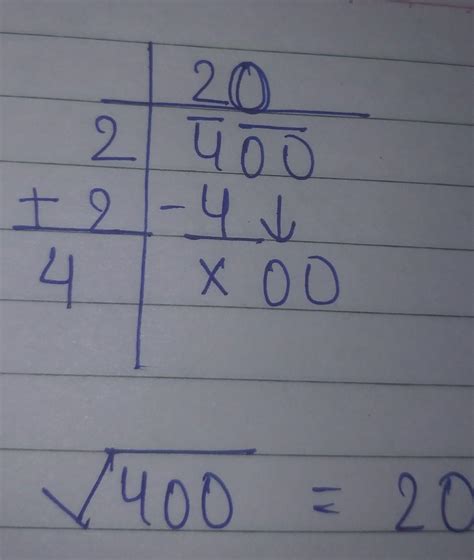 20
2 400
+ 2 - 4 ↓
4 × 00
√400 = 20